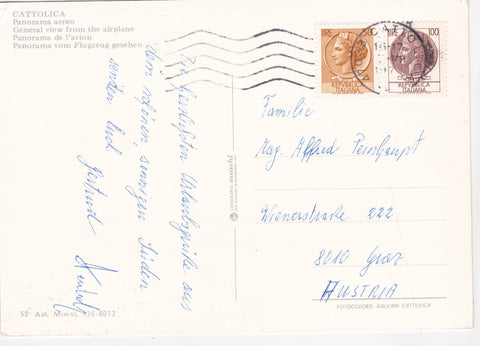 CATTOLICA
Panorama aereo
General view from the airplane
Panorama de l'avion
Panorama vom Flugzeug gesehen
Die herzlichsten Urlaubsgrüße aus
dem schönen, sonnigen Süden
senden Euch
Gertrud
LIRE 50
REPVBBLICA
ITALIANA
LIRE 100
REPVBBLICA
ITALIANA
Familie
Mag. Alfred Peinhaupt
Wienerstraße 222
8010 Graz
AUSTRIA
52° Aut. Minist. 135-8012
FOTOCOLORS GALVANI CATTOLICA